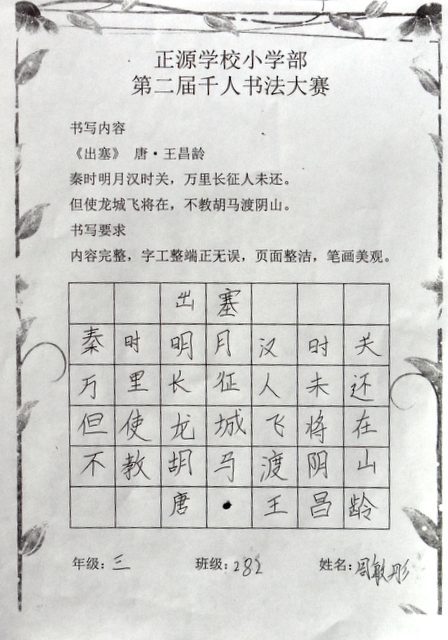 正源学校小学部
第二届千人书法大赛
书写内容
《出塞》 唐·王昌龄
秦时明月汉时关，万里长征人未还。
但使龙城飞将在，不教胡马渡阴山。
书写要求
内容完整，字工整端正无误，页面整洁，笔画美观。
出塞
秦时明月汉时关
万里长征人未还
但使龙城飞将在
不教胡马渡阴山
唐·王昌龄
年级：三 班级：282 姓名：周敏彤